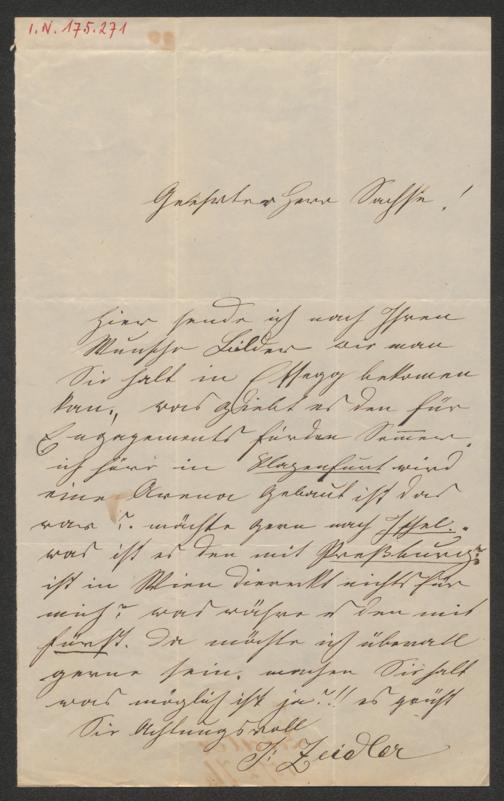 I.N. 175.271
Geehrter Herr Sachse!
Hier sende ich nach Ihren
Wunsche Bilder wie man
Sie halt in Essegg bekomen
kan, was giebt es den für
Engagements für den Sommer.
ich höre in Klagenfurt wird
eine Arena gebaut ist das
war? möchte gern nach Ischel.
was ist es den mit Preßburg?
ist in Wien dierekt nichts für
mich? was währe es den mit
Fürst. da möchte ich überall
gerne sein. machen Sie halt
was möglich ist ja?!! es grüßt
Sie Achtungsvoll
F. Zeidler